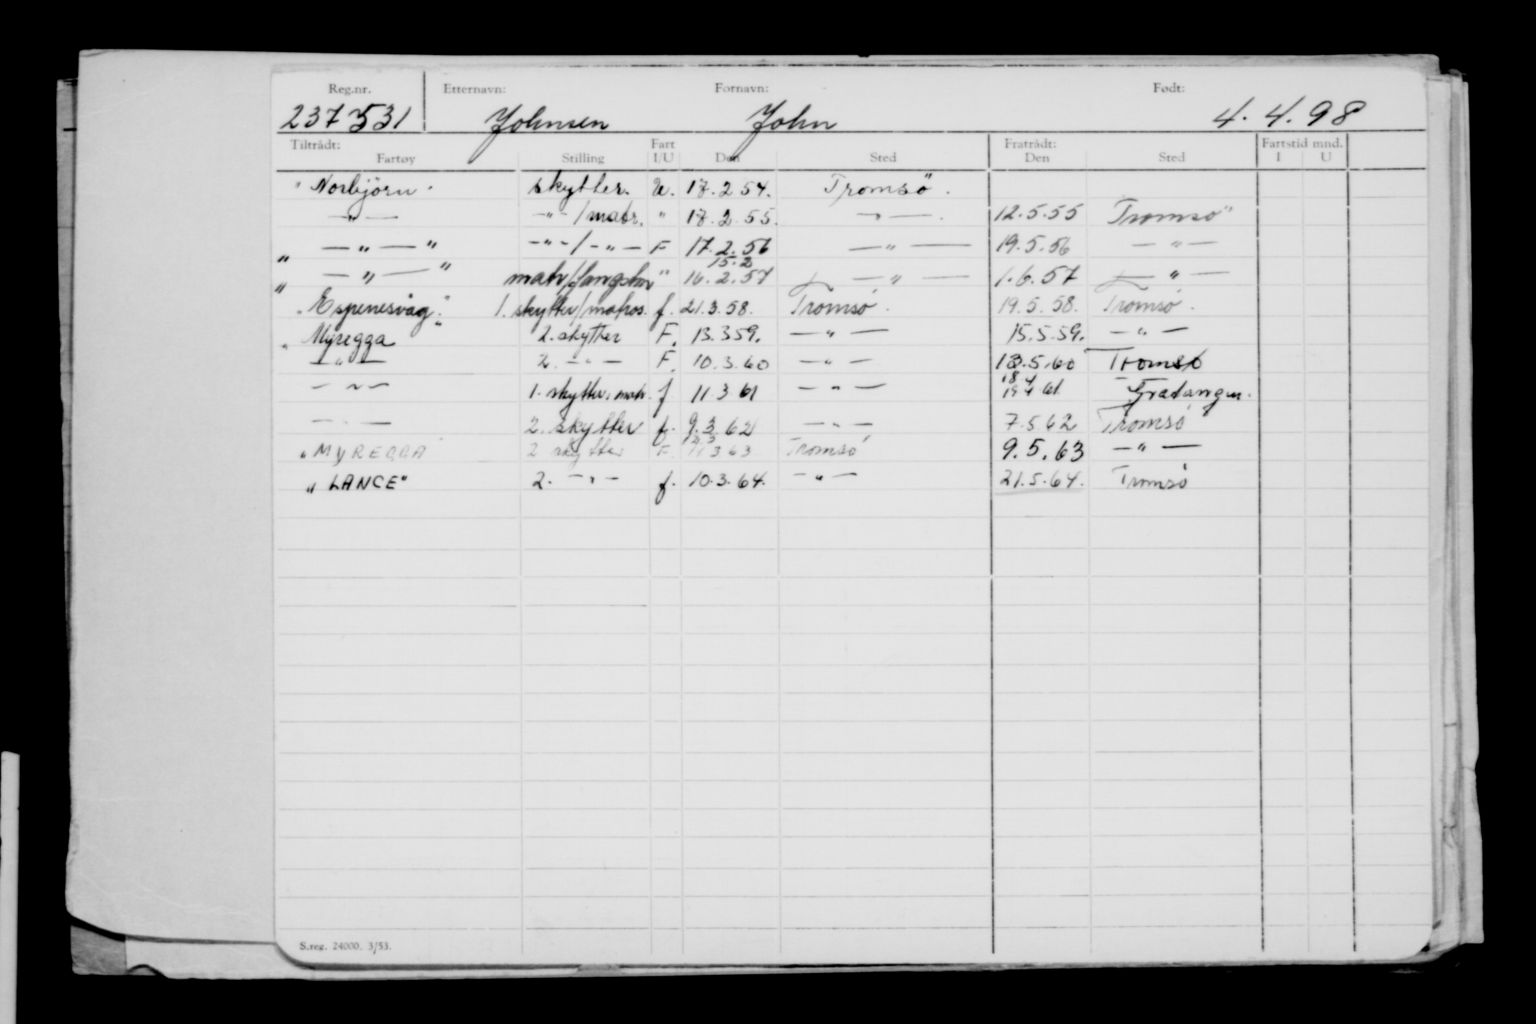 Reg.nr. Etternavn: Fornavn: Født:
237531 Johnsen John 4.4.98
Tiltrådt: Fart Fratrådt: Fartstid mnd.
Fartøy Stilling I/U Den Sted Den Sted I U
"Norbjörn" skytter. U. 17.2 54. Tromsö.
—"— —"—/matr. " 17.2.55. —"—. 12.5.55 Tromsö"
"—"—" —"—/—"— F 17.2.56 —"— 19.5.56 —"—
15.2
"—"—" matr/fangstm " 16.2.57 —"— 1.6.57 —"—
"Espenesvåg" 1. skytter/matros. f. 21.3.58. Tromsó. 19.5.58. Tromsó.
"Myregga" 2. skytter F. 13.359. —"— 15.5.59. —"—
—"— 2. —"— F. 10.3.60 —"— 13.5.60 Tromsø
18 4
—"— 1. skytter, matr. f 11 3 61 —"— 19 4 61 Gratangen.
—"— 2. skytter f. 9.3.62 —"— 7.5.62 Tromsó
"MYREGGA" 2 skytter F. 11 3 63 Tromsó 9.5.63 —"—
"LANCE" 2. —"— f. 10.3.64. —"— 21.5.64. Tromsó
S.reg. 24000. 3/53.